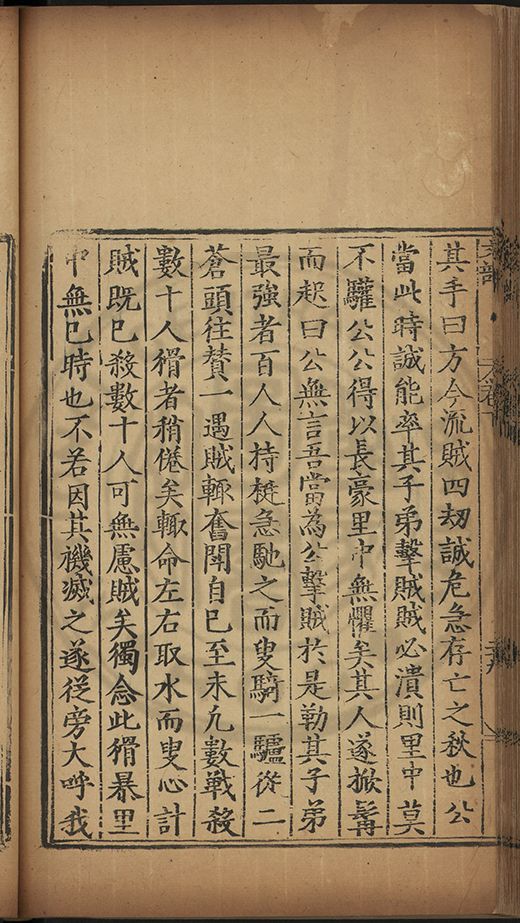 其手曰方今流賊四刼誠危急存亡之秋也公
當此時誠能率其子弟擊賊賊必潰則里中莫
不驩公公得以長豪里中無懼矣其人遂掀髯
而起曰公無言吾當為公擊賊於是勒其子弟
最強者百人人持梃急馳之而叟騎一驢從二
蒼頭往賛一遇賊輒奮鬥自巳至未凢數戰殺
數十人猾者稍倦矣輒命左右取水而叟心計
賊既已殺數十人可無慮賊矣獨念此猾暴里
中無已時也不若因其機滅之遂從旁大呼我